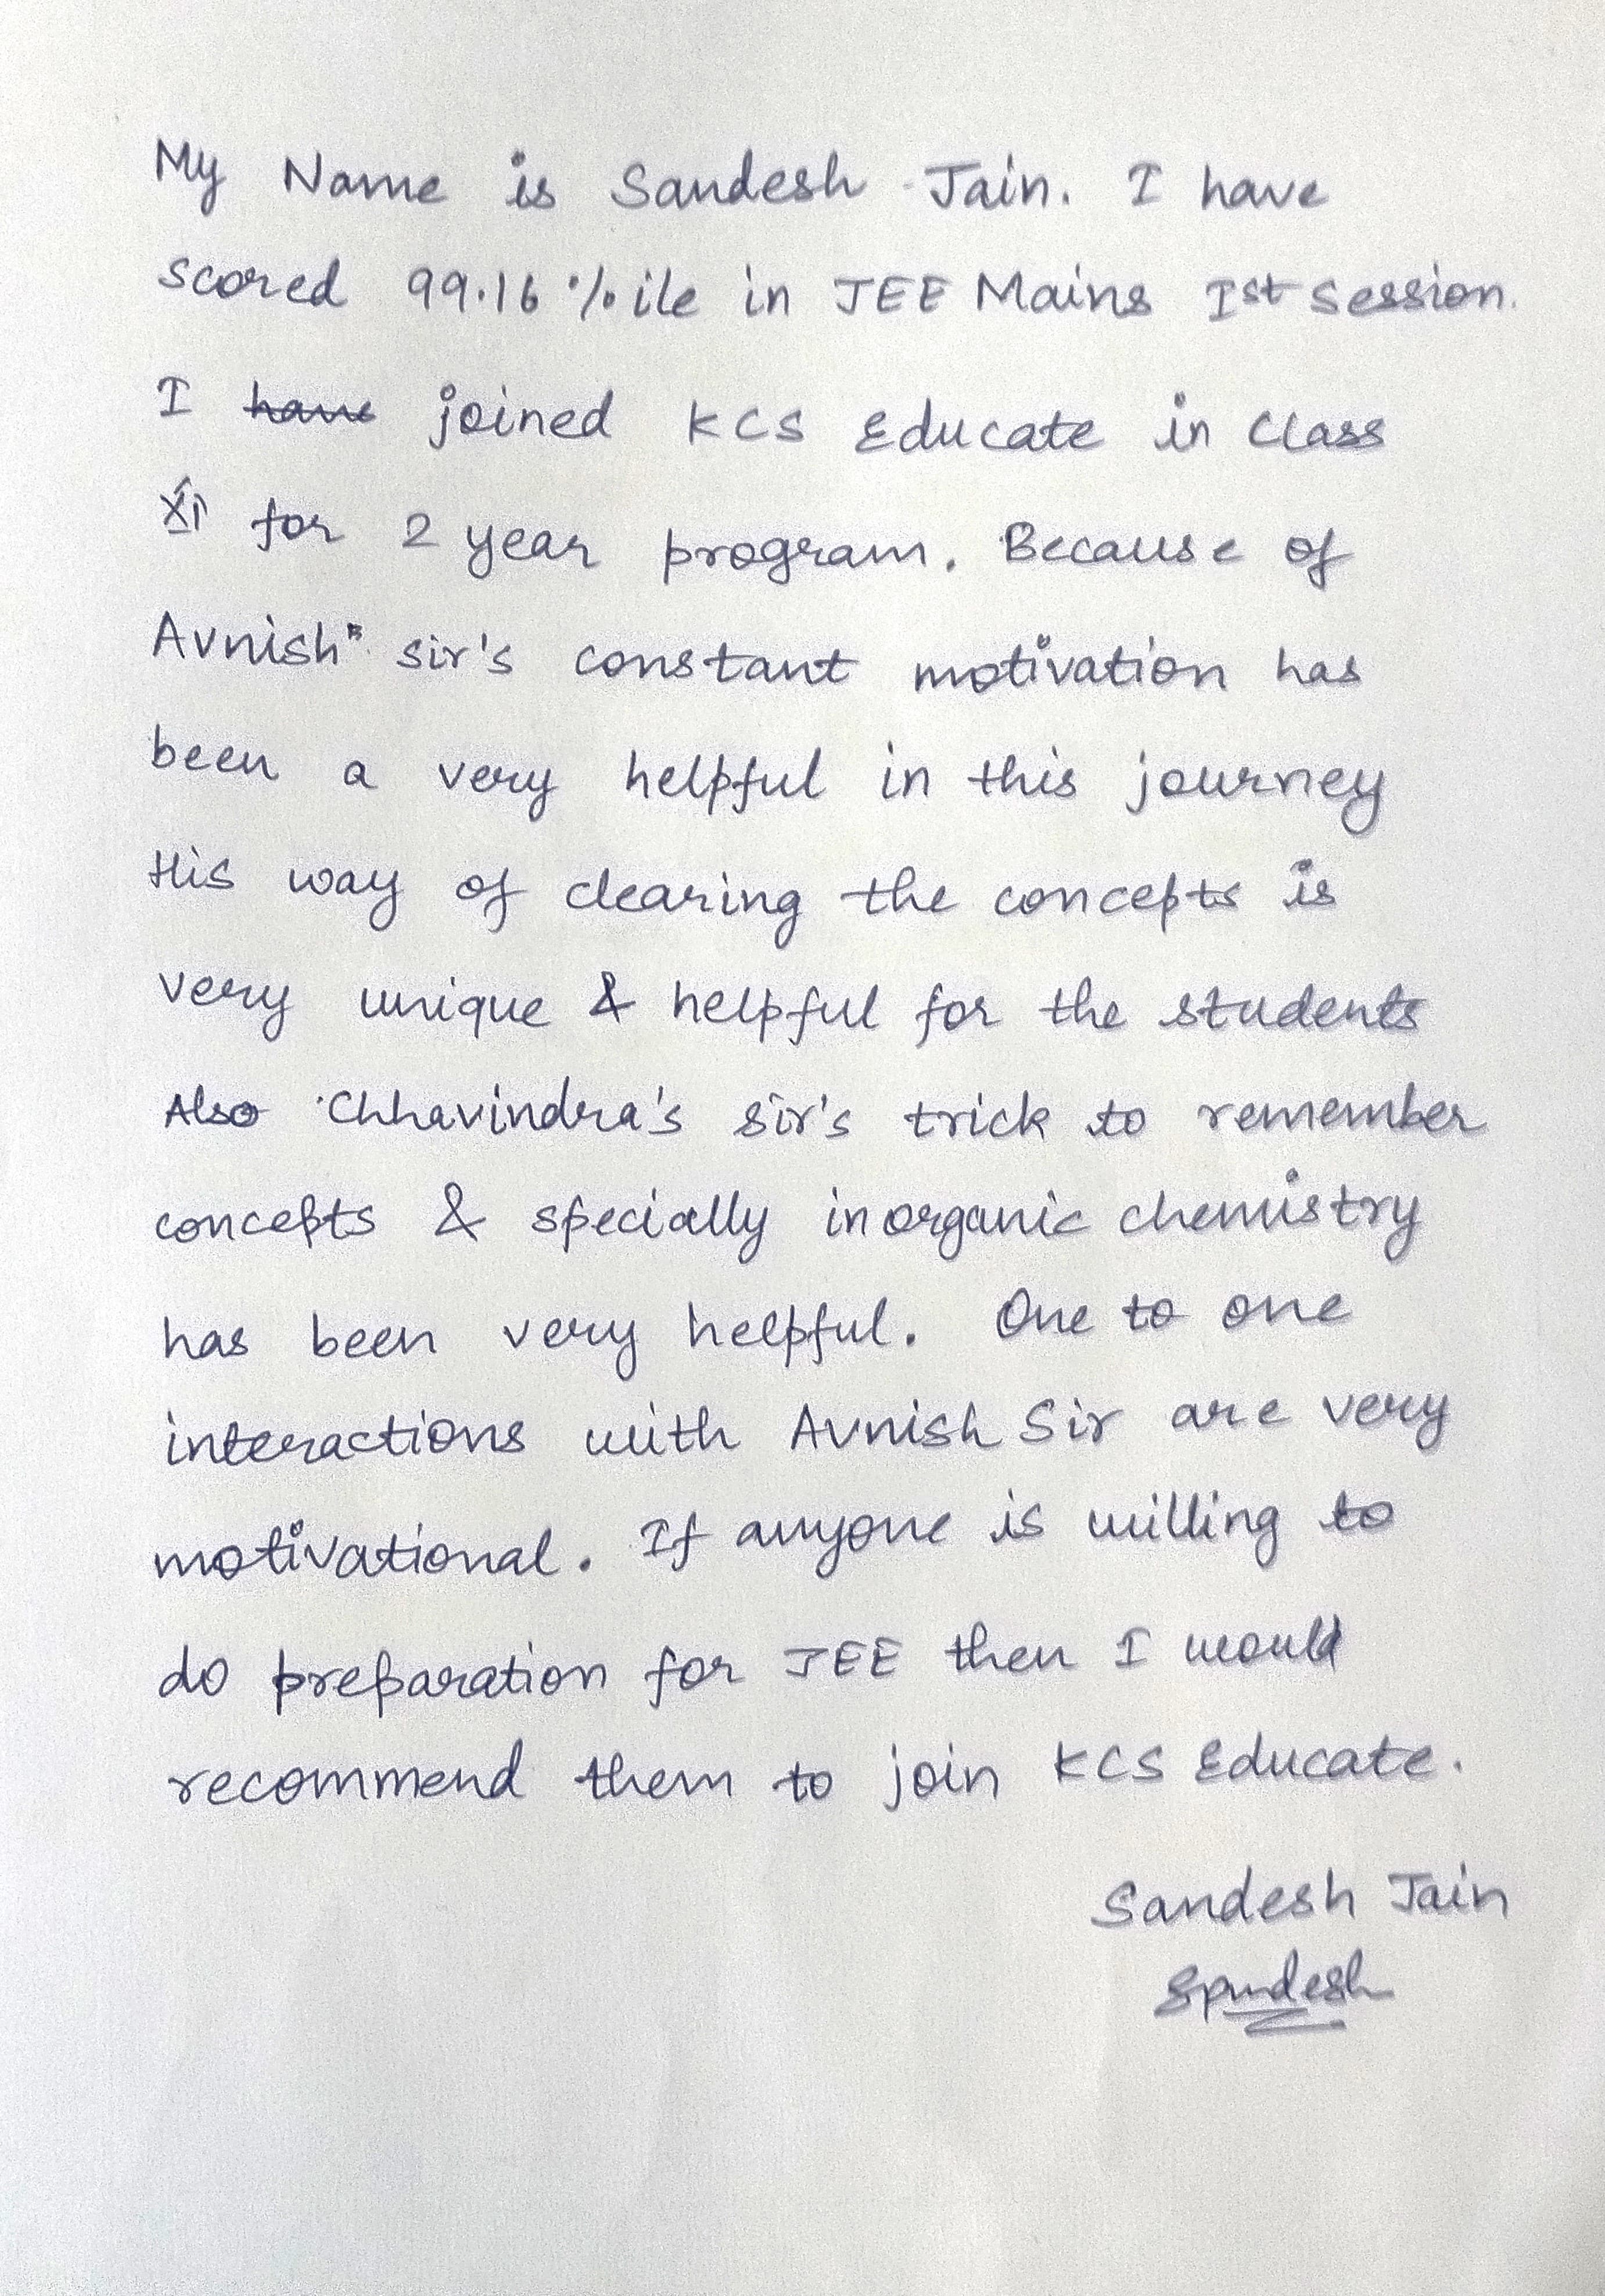 My Name is Sandesh Jain. I have
scored 99.16 %ile in JEE Mains Ist Session.
I have joined KCS Educate in Class
XI for 2 year program. Because of
Avnish" sir's constant motivation has
been a very helpful in this journey
His way of clearing the concepts is
very unique & helpful for the students
Also Chhavindra's sir's trick to remember
concepts & specially inorganic chemistry
has been very helpful. One to one
interactions with Avnish Sir are very
motivational. If anyone is willing to
do preparation for JEE then I would
recommend them to join KCS Educate.
Sandesh Jain
Sandesh